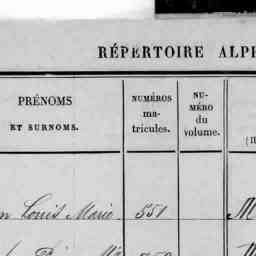 RÉPERTOIRE ALPH
PRÉNOMS
ET SURNOMS.
NUMÉROS
ma-
tricules.
NU-
MÉRO
du
volume.
Louis Marie 551